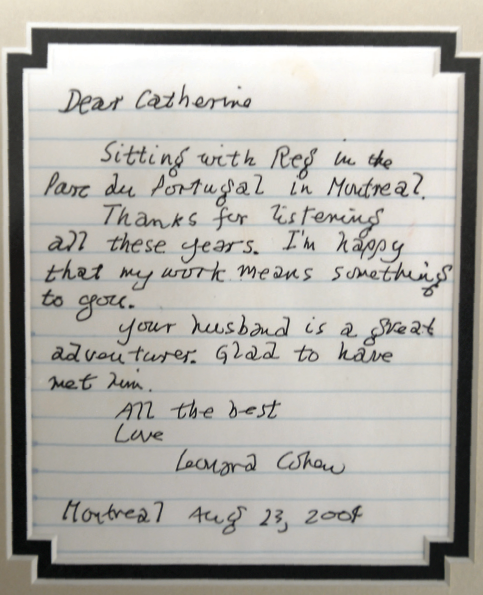 Dear Catherine
Sitting with Reg in the
Parc du Portugal in Montreal.
Thanks for listening
all these years. I'm happy
that my work means something
to you.
your husband is a great
adventurer. Glad to have
met him.
All the best
Love
Leonard Cohen
Montreal Aug 23, 2004